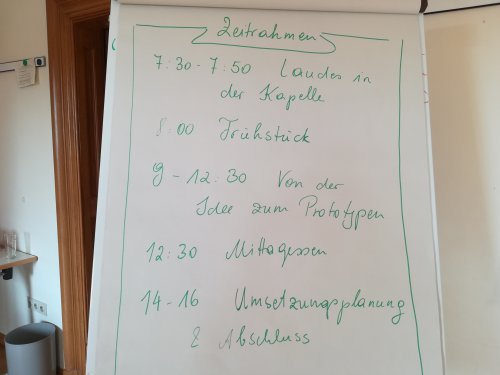 Zeitrahmen
7:30-7:50 Laudes in
der Kapelle
8:00 Frühstück
9-12:30 Von der
Idee zum Prototypen
12:30 Mittagessen
14-16 Umsetzungsplanung
& Abschluss